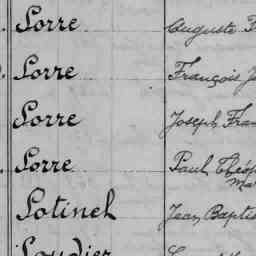 Lorre Auguste F
Lorre François J
Lorre Joseph Fran
Lorre Paul Théop
Ma
Lotinel Jean Baptis
Loudier